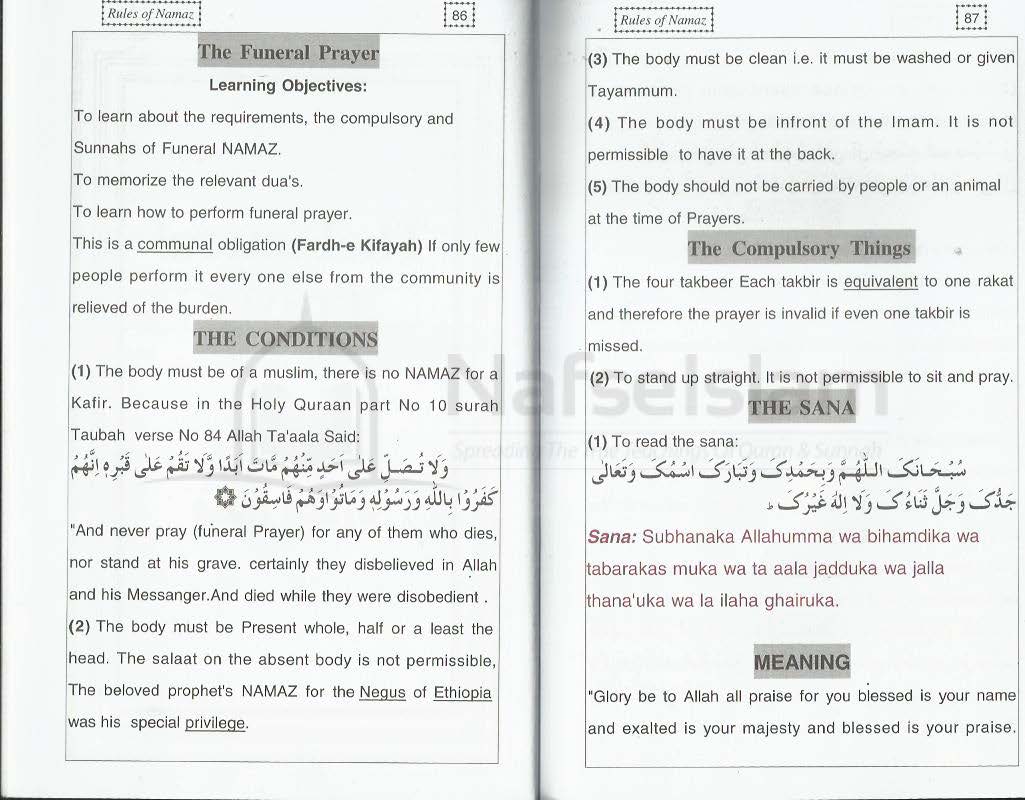 Rules of Namaz
86
The Funeral Prayer
Learning Objectives:
To learn about the requirements, the compulsory and
Sunnahs of Funeral NAMAZ.
To memorize the relevant dua's.
To learn how to perform funeral prayer.
This is a communal obligation (Fardh-e Kifayah) If only few
people perform it every one else from the community is
relieved of the burden.
THE CONDITIONS
(1) The body must be of a muslim, there is no NAMAZ for a
Kafir. Because in the Holy Quraan part No 10 surah
Taubah verse No 84 Allah Ta'aala Said:
وَلَا تُصَلِّ عَلٰى اَحَدٍ مِّنْهُمْ مَّاتَ اَبَدًا وَّلَا تَقُمْ عَلٰى قَبْرِهٖ اِنَّهُمْ
كَفَرُوْا بِاللّٰهِ وَرَسُوْلِهٖ وَمَاتُوْا وَهُمْ فَاسِقُوْنَ ۞
"And never pray (funeral Prayer) for any of them who dies,
nor stand at his grave. certainly they disbelieved in Allah
and his Messanger.And died while they were disobedient .
(2) The body must be Present whole, half or a least the
head. The salaat on the absent body is not permissible,
The beloved prophet's NAMAZ for the Negus of Ethiopia
was his special privilege.
Rules of Namaz
87
(3) The body must be clean i.e. it must be washed or given
Tayammum.
(4) The body must be infront of the Imam. It is not
permissible to have it at the back.
(5) The body should not be carried by people or an animal
at the time of Prayers.
The Compulsory Things
(1) The four takbeer Each takbir is equivalent to one rakat
and therefore the prayer is invalid if even one takbir is
missed.
(2) To stand up straight. It is not permissible to sit and pray.
THE SANA
(1) To read the sana:
سُبْحَانَكَ اللّٰهُمَّ وَبِحَمْدِكَ وَتَبَارَكَ اسْمُكَ وَتَعَالٰى
جَدُّكَ وَجَلَّ ثَنَاءُكَ وَلَا اِلٰهَ غَيْرُكَ ط
Sana: Subhanaka Allahumma wa bihamdika wa
tabarakas muka wa ta aala jadduka wa jalla
thana'uka wa la ilaha ghairuka.
MEANING
"Glory be to Allah all praise for you blessed is your name
and exalted is your majesty and blessed is your praise.
NafseIslam
Spreading The True Teachings Of Quran & Sunnah